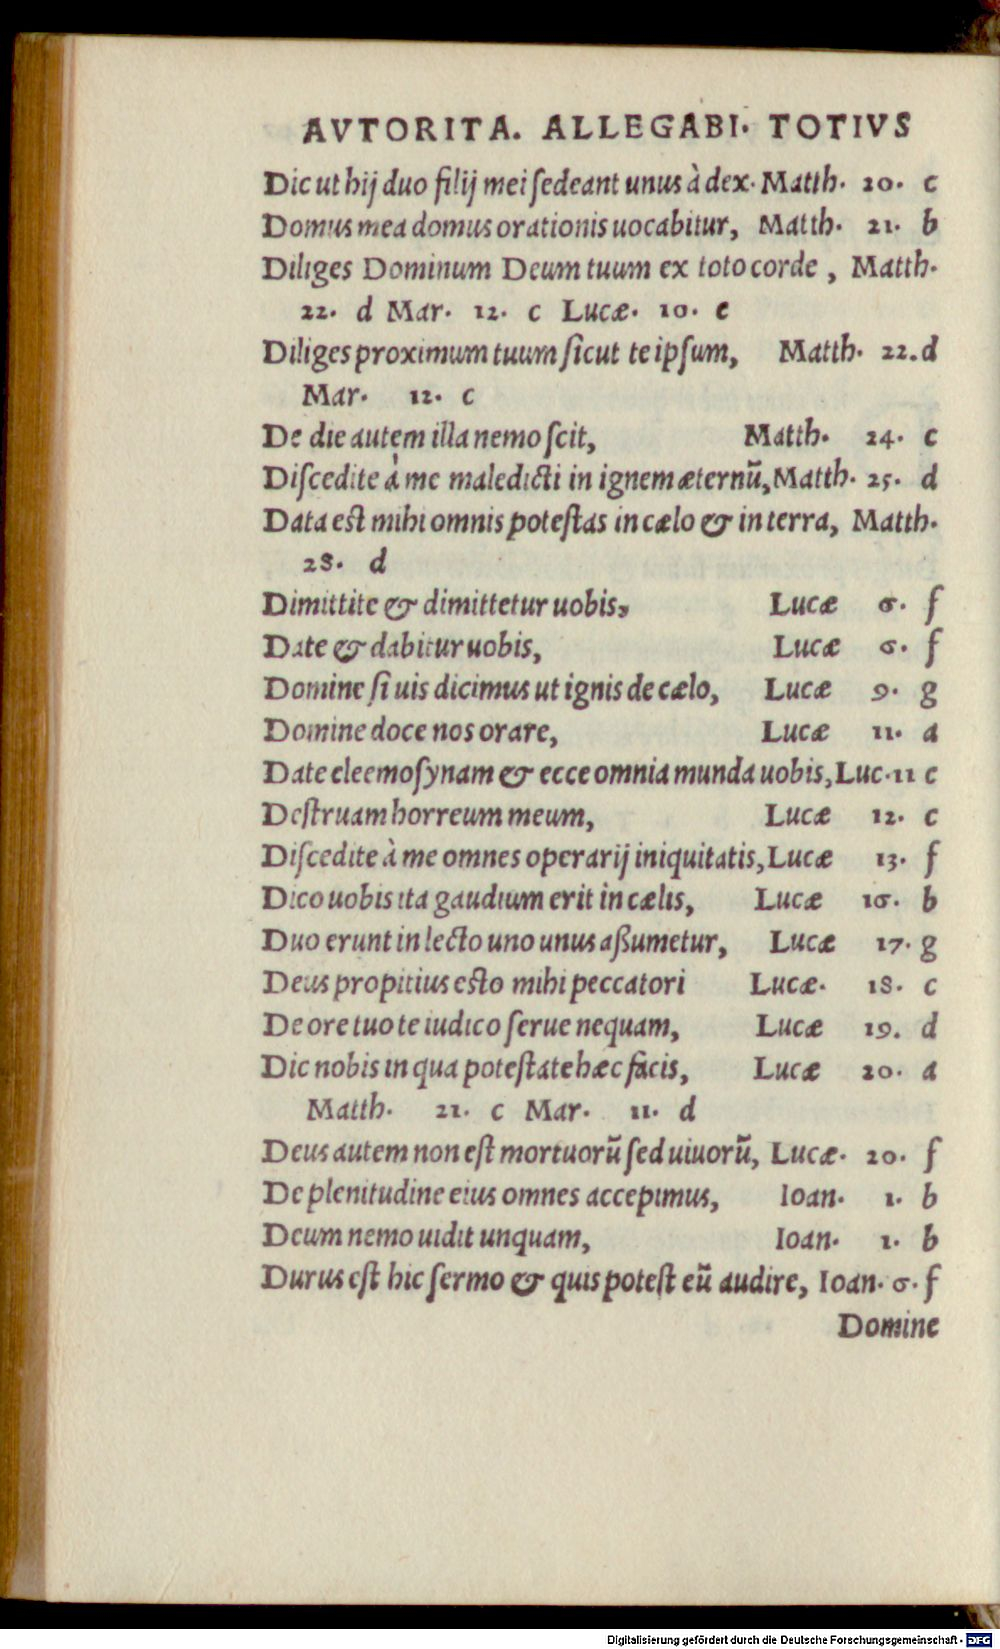 AVTORITA. ALLEGABI. TOTIVS
Dic ut hij duo filij mei ſedeant unus à dex. Matth. 20. c
Domus mea domus orationis uocabitur, Matth. 21. b
Diliges Dominum Deum tuum ex toto corde , Matth.
22. d Mar. 12. c Lucæ. 10. e
Diliges proximum tuum ſicut te ipſum, Matth. 22. d
Mar. 12. c
De die autem illa nemo ſcit, Matth. 24. c
Diſcedite à me maledicti in ignem æternũ, Matth. 25. d
Data eſt mihi omnis poteſtas in cælo & in terra, Matth.
28. d
Dimittite & dimittetur uobis, Lucæ 6. f
Date & dabitur uobis, Lucæ 6. f
Domine ſi uis dicimus ut ignis de cælo, Lucæ 9. g
Domine doce nos orare, Lucæ 11. a
Date eleemoſynam & ecce omnia munda uobis, Luc. 11 c
Deſtruam horreum meum, Lucæ 12. c
Diſcedite à me omnes operarij iniquitatis, Lucæ 13. f
Dico uobis ita gaudium erit in cælis, Lucæ 16. b
Duo erunt in lecto uno unus aßumetur, Lucæ 17. g
Deus propitius eſto mihi peccatori Lucæ. 18. c
De ore tuo te iudico ſerue nequam, Lucæ 19. d
Dic nobis in qua poteſtate hæc facis, Lucæ 20. a
Matth. 21. c Mar. 11. d
Deus autem non eſt mortuorũ ſed uiuorũ, Lucæ. 20. f
De plenitudine eius omnes accepimus, Ioan. 1. b
Deum nemo uidit unquam, Ioan. 1. b
Durus eſt hic ſermo & quis poteſt eũ audire, Ioan. 6. f
Domine
Digitalisierung gefördert durch die Deutsche Forschungsgemeinschaft - DFG